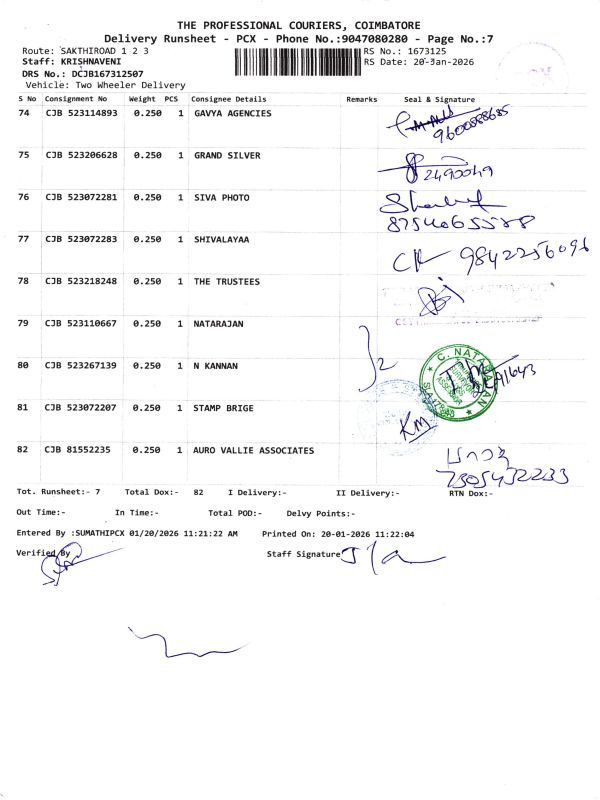 THE PROFESSIONAL COURIERS, COIMBATORE
Delivery Runsheet - PCX - Phone No.:9047080280 - Page No.:7
Route: SAKTHIROAD 1 2 3 RS No.: 1673125
Staff: KRISHNAVENI RS Date: 20-Jan-2026
DRS No.: DCJB167312507
Vehicle: Two Wheeler Delivery
S No Consignment No Weight PCS Consignee Details Remarks Seal & Signature
74 CJB 523114893 0.250 1 GAVYA AGENCIES
9600888685
75 CJB 523206628 0.250 1 GRAND SILVER
2490049
76 CJB 523072281 0.250 1 SIVA PHOTO
8754065588
77 CJB 523072283 0.250 1 SHIVALAYAA
9842256096
78 CJB 523218248 0.250 1 THE TRUSTEES
79 CJB 523110667 0.250 1 NATARAJAN
2
C. NATARAJAN
80 CJB 523267139 0.250 1 N KANNAN
81 CJB 523072207 0.250 1 STAMP BRIGE
KM
82 CJB 81552235 0.250 1 AURO VALLIE ASSOCIATES
7305432233
Tot. Runsheet:- 7 Total Dox:- 82 I Delivery:- II Delivery:- RTN Dox:-
Out Time:- In Time:- Total POD:- Delvy Points:-
Entered By :SUMATHIPCX 01/20/2026 11:21:22 AM Printed On: 20-01-2026 11:22:04
Verified By Staff Signature